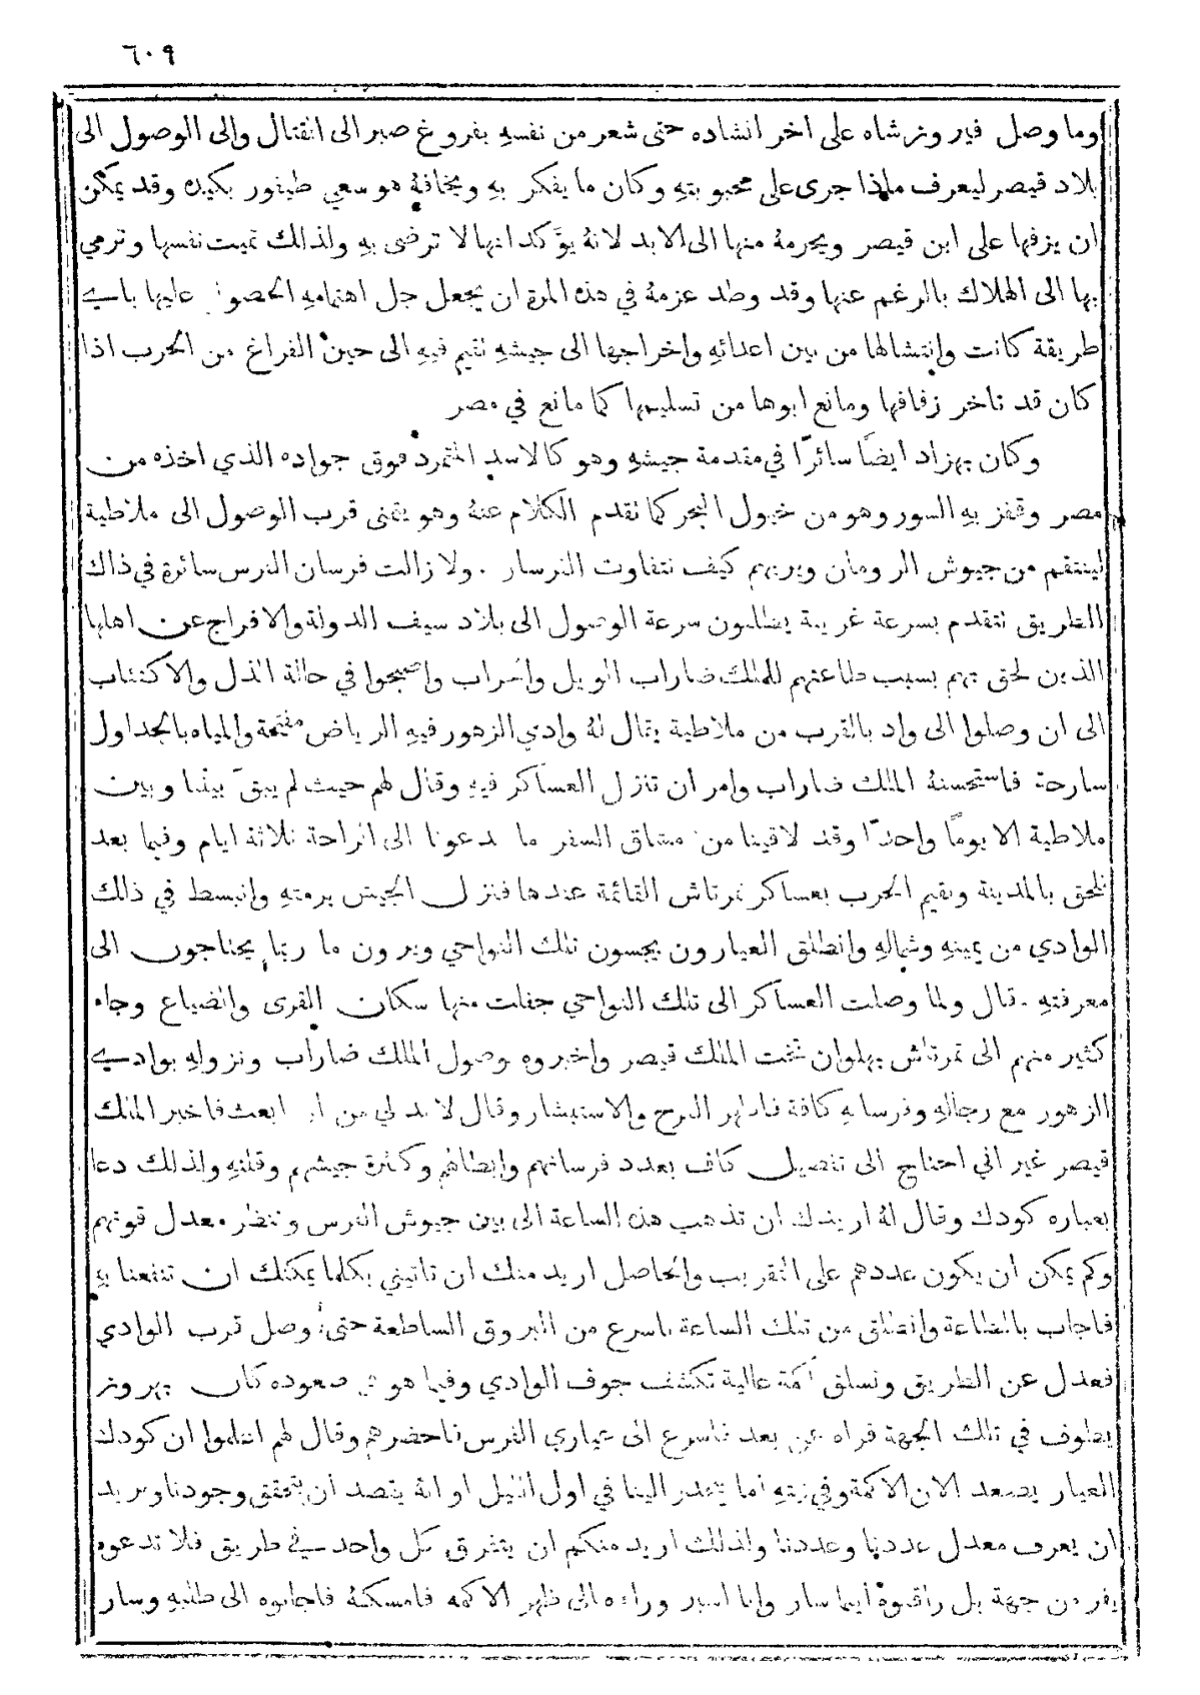 ٦٠٩
وما وصل فيروزشاه على اخر انشاده حتى شعر من نفسهِ بفروغ صبر الى القتال والى الوصول الى
بلاد قيصر ليعرف ماذا جرى على محبوبتهِ وكان ما يفكر بهِ ويخافهُ هو سعي طيفور بكيده وقد يمكن
ان يزفها على ابن قيصر ويحرمهُ منها الى الابد لانهُ يؤَكد انها لا ترضى بهِ ولذلك تميت نفسها وترمي
بها الى الهلاك بالرغم عنها وقد وطد عزمهُ في هذه المرة ان يجعل جل اهتمامهِ الحصول عليها باي
طريقة كانت وانتشالها من بين اعدائهِ واخراجها الى جيشهِ تقيم فيهِ الى حين الفراغ من الحرب اذا
كان قد تاخر زفافها ومانع ابوها من تسليمها كما مانع في مصر
وكان بهزاد ايضًا سائرًا في مقدمة جيشهِ وهو كالاسد المتمرد فوق جواده الذي اخذه من
مصر وقفز بهِ السور وهو من خيول البحر كما تقدم الكلام عنهُ وهو يتمنى قرب الوصول الى ملاطية
لينتقم من جيوش الرومان ويريهم كيف تتفاوت الفرسان . ولا زالت فرسان الفرس سائرة في ذاك
الطريق تتقدم بسرعة غريبة يطلبون سرعة الوصول الى بلاد سيف الدولة والافراج عن اهلها
الذين لحق بهم بسبب طاعتهم للملك ضاراب الويل والخراب واصبحوا في حالة الذل والاكتئاب
الى ان وصلوا الى واد بالقرب من ملاطية يقال لهُ وادي الزهور فيهِ الرياض مفتحة والمياه بالجداول
سارحة فاستحسنهُ الملك ضاراب وامر ان تنزل العساكر فيهِ وقال لهم حيث لم يبقَ بيننا وبين
ملاطية الا يومًا واحدًا وقد لاقينا من مشاق السفر ما يدعونا الى الراحة ثلاثة ايام وفيما بعد
نلحق بالمدينة ونقيم الحرب بعساكر تمرتاش القائمة عندها فنزل الجيش برمتهِ وانبسط في ذلك
الوادي من يمينهِ وشمالهِ وانطلق العيارون يجسون تلك النواحي ويرون ما ربما يحتاجون الى
معرفتهِ . قال ولما وصلت العساكر الى تلك النواحي جفلت منها سكان القرى والضياع وجاء
كثير منهم الى تمرتاش بهلوان تخت الملك قيصر واخبروه وصول الملك ضاراب ونزولهِ بوادي
الزهور مع رجالهِ وفرسانهِ كافة فاظهر الفرح والاستبشار وقال لا بد لي من ان ابعث فاخبر الملك
قيصر غير اني احتاج الى تفصيل كاف بعدد فرسانهم وابطالهم وكثرة جيشهم وقلتهِ ولذلك دعا
بعياره كودك وقال لهُ اريدك ان تذهب هذه الساعة الى بين جيوش الفرس وتنظر معدل قوتهم
وكم يمكن ان يكون عددهم على التقريب والحاصل اريد منك ان تاتيني بكلما يمكنك ان تنفعنا بهِ
فاجاب بالطاعة وانطلق من تلك الساعة باسرع من البروق الساطعة حتى وصل قرب الوادي
فعدل عن الطريق وتسلق اكمة عالية تكشف جوف الوادي وفيما هو في صعوده كان بهروز
يطوف في تلك الجهة فراه عن بعد فاسرع الى عياري الفرس فاحضرهم وقال لهم اعلموا ان كودك
العيار يصعد الان الاكمة وفي نيتهِ اما ينحدر الينا في اول الليل او انهُ يقصد ان يتحقق وجودنا ويريد
ان يعرف معدل عددنا وعددنا ولذلك اريد منكم ان يتفرق كل واحد في طريق فلا تدعوه
يفر من جهة بل راقبوهُ اينما سار وانا اسير وراءه الى ظهر الاكمة فامسكهُ فاجابوه الى طلبهِ وسار